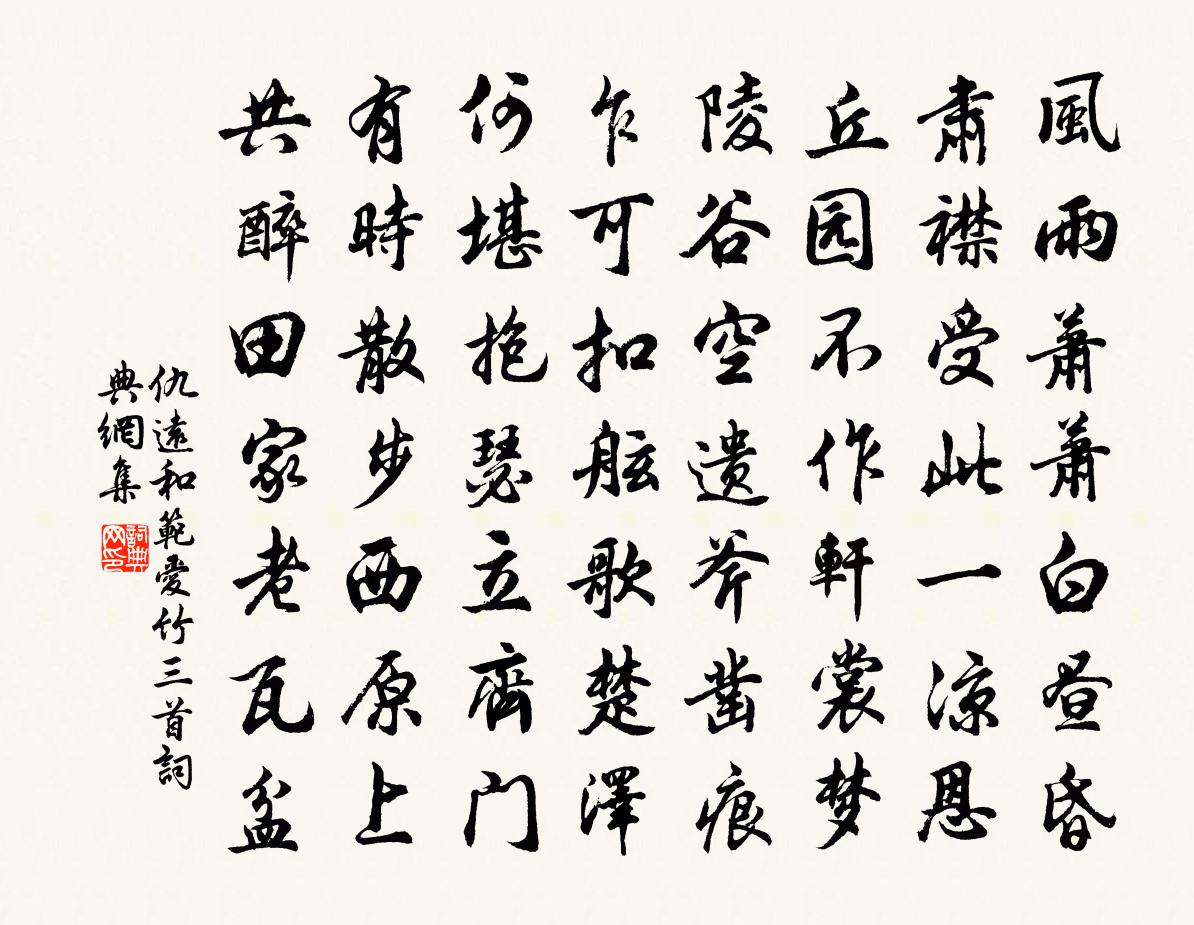 風雨蕭蕭白昼昏
肅襟受此一凉恩
丘园不作軒裳梦
陵谷空遗斧凿痕
乍可扣舷歌楚澤
何堪抱瑟立齊门
有時散步西原上
共醉田家老瓦盆
仇遠和範愛竹三首詞
典網集
詞典网印